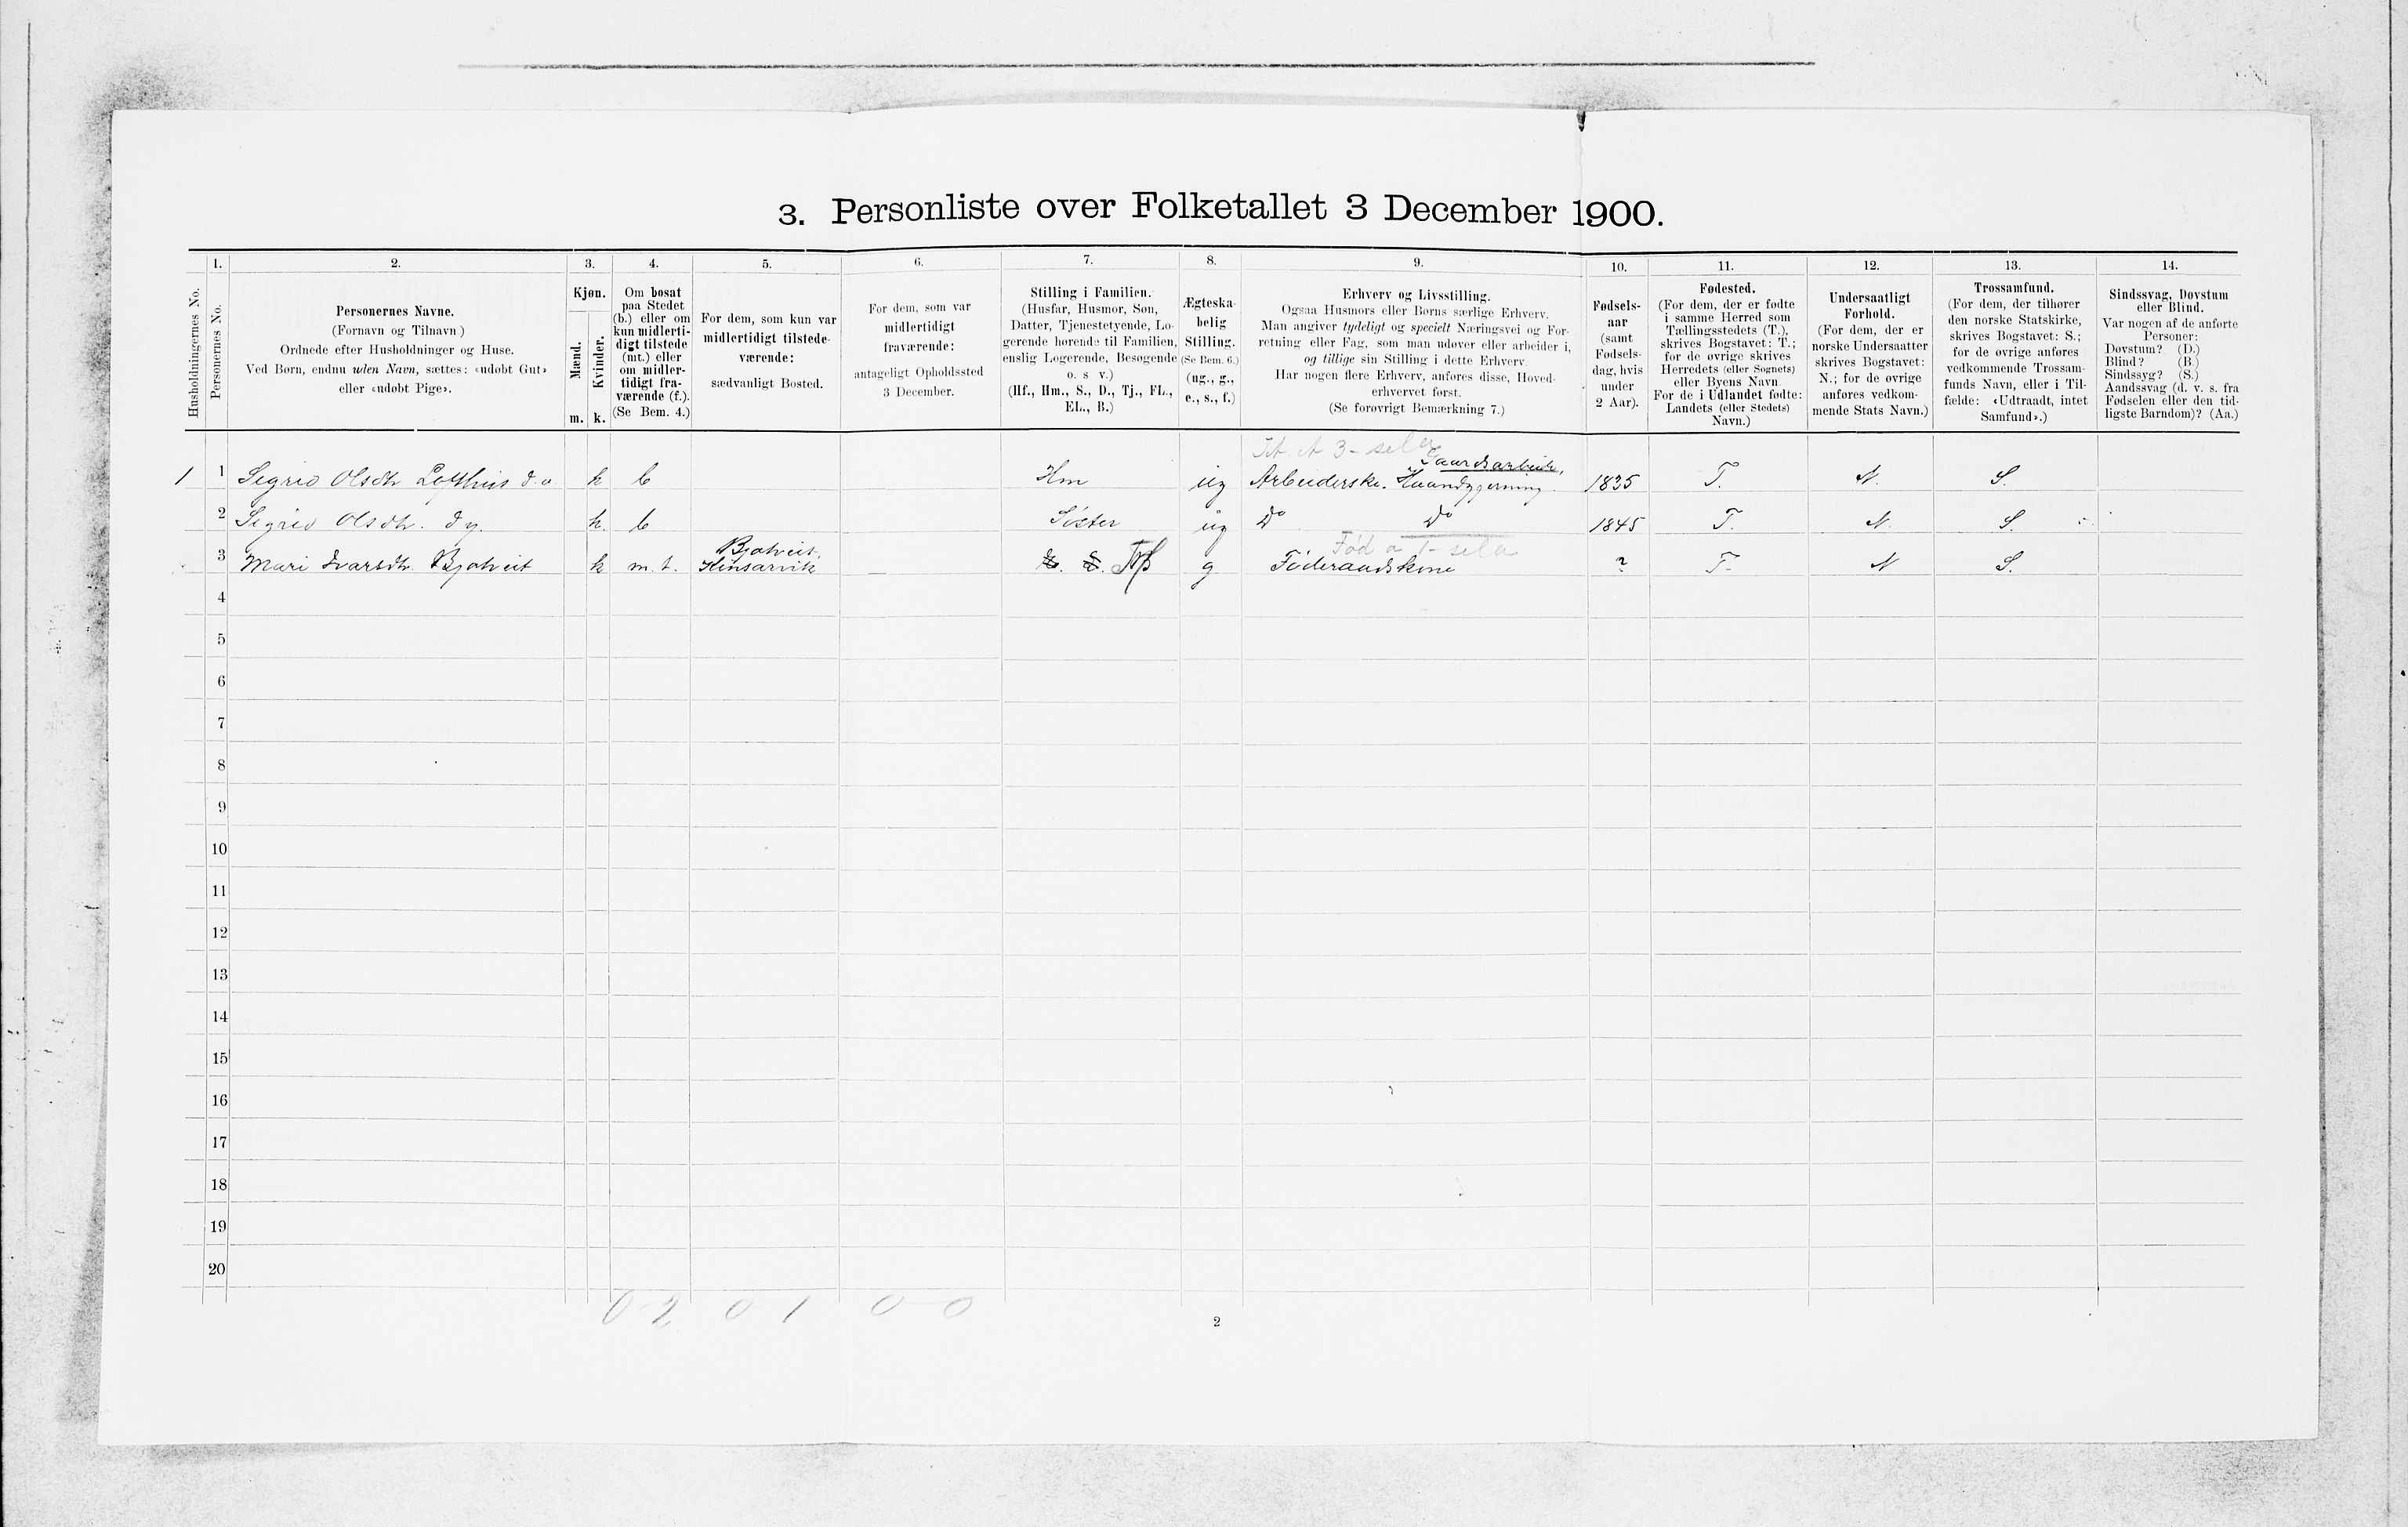 3. Personliste over Folketallet 3 December 1900.
Husholdningernes No.
1.
Personernes No.
2.
Personernes Navne.
(Fornavn og Tilnavn.)
Ordnede efter Husholdninger og Huse.
Ved Børn, endnu uden Navn, sættes: «udøbt Gut»
eller «udøbt Pige».
3.
Kjøn.
Mænd.
m.
Kvinder.
k.
4.
Om bosat
paa Stedet
(b.) eller om
kun midlerti-
digt tilstede
(mt.) eller
om midler-
tidigt fra-
værende (f.).
(Se Bem. 4.)
5.
For dem, som kun var
midlertidigt tilstede-
værende:
sædvanligt Bosted.
6.
For dem, som var
midlertidigt
fraværende:
antageligt Opholdssted
3 December.
7.
Stilling i Familien.
(Husfar, Husmor, Søn,
Datter, Tjenestetyende, Lo-
gerende hørende til Familien,
enslig Logerende, Besøgende
o. s v.)
(Hf., Hm., S., D., Tj., FL.,
EL., B.)
8.
Ægteska-
belig
Stilling.
(Se Bem. 6.)
(ug., g.,
e., s., f.)
9.
Erhverv og Livsstilling.
Ogsaa Husmors eller Børns særlige Erhverv.
Man angiver tydeligt og specielt Næringsvei og For-
retning eller Fag, som man udøver eller arbeider i,
og tillige sin Stilling i dette Erhverv.
Har nogen flere Erhverv, anføres disse, Hoved-
erhvervet først.
(Se forøvrigt Bemærkning 7.)
10.
Fødsels-
aar
(samt
Fødsels-
dag, hvis
under
2 Aar).
11.
Fødested.
(For dem, der er fødte
i samme Herred som
Tællingsstedets (T.),
skrives Bogstavet: T.;
for de øvrige skrives
Herredets (eller Sognets)
eller Byens Navn.
For de i Udlandet fødte:
Landets (eller Stedets)
Navn.)
12.
Undersaatligt
Forhold.
(For dem, der er
norske Undersaatter
skrives Bogstavet:
N.; for de øvrige
anføres vedkom-
mende Stats Navn.)
13.
Trossamfund.
(For dem, der tilhører
den norske Statskirke,
skrives Bogstavet: S.;
for de øvrige anføres
vedkommende Trossam-
funds Navn, eller i Til-
fælde: «Udtraadt, intet
Samfund».)
14.
Sindssvag, Døvstum
eller Blind.
Var nogen af de anførte
Personer:
Døvstum? (D.)
Blind? (B.)
Sindssyg? (S.)
Aandssvag (d. v. s. fra
Fødselen eller den tid-
ligste Barndom)? (Aa.)
3 - sela
Gaardsarbeide,
1 1 Sigrid Olsdtr Lofthus d. æ k b Hm ug Arbeiderske. Haandgjerning. 1835 T. N. S.
2 Sigrid Olsdtr. d y. k. b Søster ug Do Do 1845 T. N. S.
Bjotveit, Fød a 1 - sela
3 Mari Ivarsdtr. Bjotveit k m. t. Kinsarvik g Føderaadskone ? T. N S.
4
5
6
7
8
9
10
11
12
13
14
15
16
17
18
19
20
0-2 0 1 0-0
2